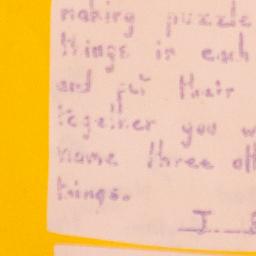 making puzzle
things in each
and put their
together you w
name three oth
things.
I